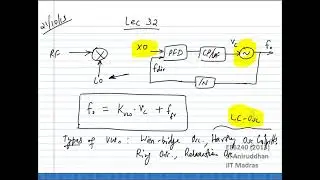 21/10/13
Lec 32
RF
LO
XO
PFD
CP/LF
Vc
fo
fdiv
1/N
fo = Kvco · vc + ffr
LC-Osc
Types of VCOs: Wien-bridge Osc., Hartley Osc, Colpitts
Ring Osc., Relaxation Osc
EE6240 (2013)
S Aniruddhan
IIT Madras